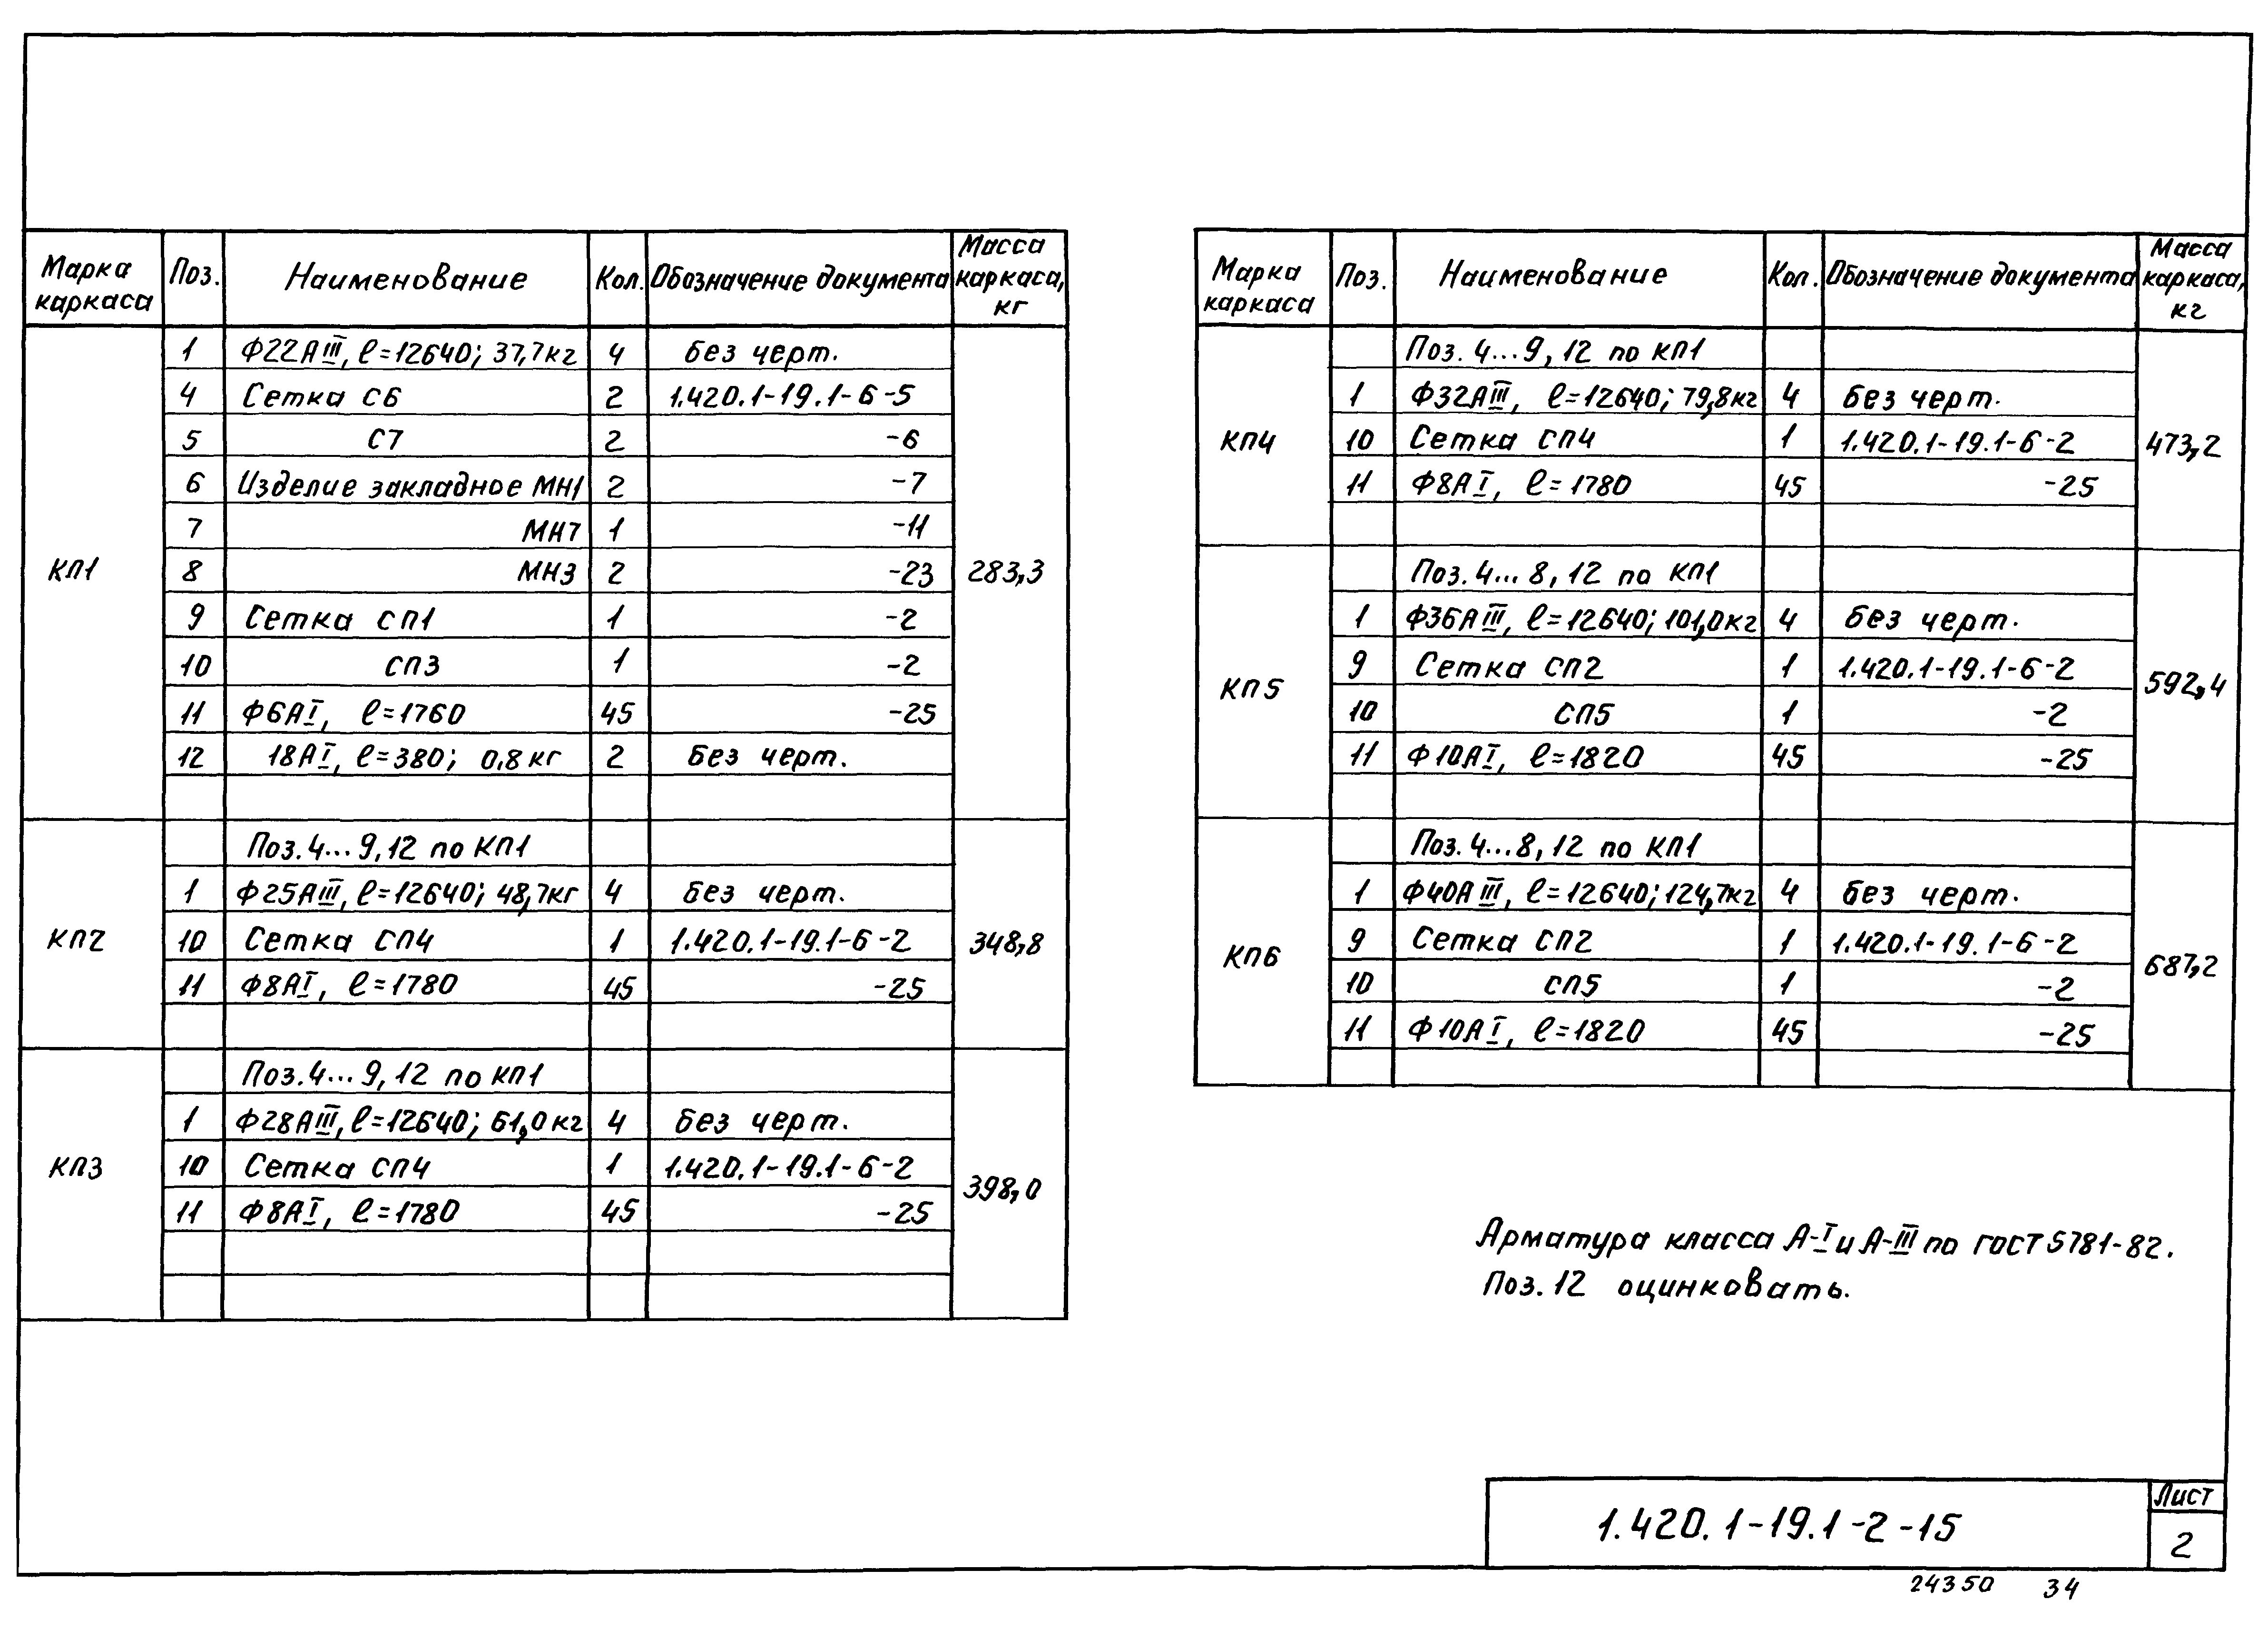 Марка каркаса | Поз. | Наименование | Кол. | Обозначение документа | Масса каркаса, кг
КП1 | 1 | Ф22АIII, ℓ=12640; 37,7кг | 4 | Без черт. | 283,3
4 | Сетка С6 | 2 | 1.420.1-19.1-6-5
5 | С7 | 2 | -6
6 | Изделие закладное МН1 | 2 | -7
7 | МН7 | 1 | -11
8 | МН3 | 2 | -23
9 | Сетка СП1 | 1 | -2
10 | СП3 | 1 | -2
11 | Ф6АI, ℓ=1760 | 45 | -25
12 | 18АI, ℓ=380; 0,8кг | 2 | Без черт.
КП2 | Поз.4...9,12 по КП1 | 348,8
1 | Ф25АIII, ℓ=12640; 48,7кг | 4 | Без черт.
10 | Сетка СП4 | 1 | 1.420.1-19.1-6-2
11 | Ф8АI, ℓ=1780 | 45 | -25
КП3 | Поз.4...9,12 по КП1 | 398,0
1 | Ф28АIII, ℓ=12640; 61,0кг | 4 | Без черт.
10 | Сетка СП4 | 1 | 1.420.1-19.1-6-2
11 | Ф8АI, ℓ=1780 | 45 | -25
Марка каркаса | Поз. | Наименование | Кол. | Обозначение документа | Масса каркаса, кг
КП4 | Поз. 4...9, 12 по КП1 | 473,2
1 | Ф32АIII, ℓ=12640; 79,8кг | 4 | Без черт.
10 | Сетка СП4 | 1 | 1.420.1-19.1-6-2
11 | Ф8АI, ℓ=1780 | 45 | -25
КП5 | Поз.4...8, 12 по КП1 | 592,4
1 | Ф36АIII, ℓ=12640; 101,0кг | 4 | Без черт.
9 | Сетка СП2 | 1 | 1.420.1-19.1-6-2
10 | СП5 | 1 | -2
11 | Ф10АI, ℓ=1820 | 45 | -25
КП6 | Поз.4...8, 12 по КП1 | 687,2
1 | Ф40АIII, ℓ=12640; 124,7кг | 4 | Без черт.
9 | Сетка СП2 | 1 | 1.420.1-19.1-6-2
10 | СП5 | 1 | -2
11 | Ф10АI, ℓ=1820 | 45 | -25
Арматура класса А-I и А-III по ГОСТ 5781-82.
Поз.12 оцинковать.
1.420.1-19.1-2-15
Лист
2
24350 34